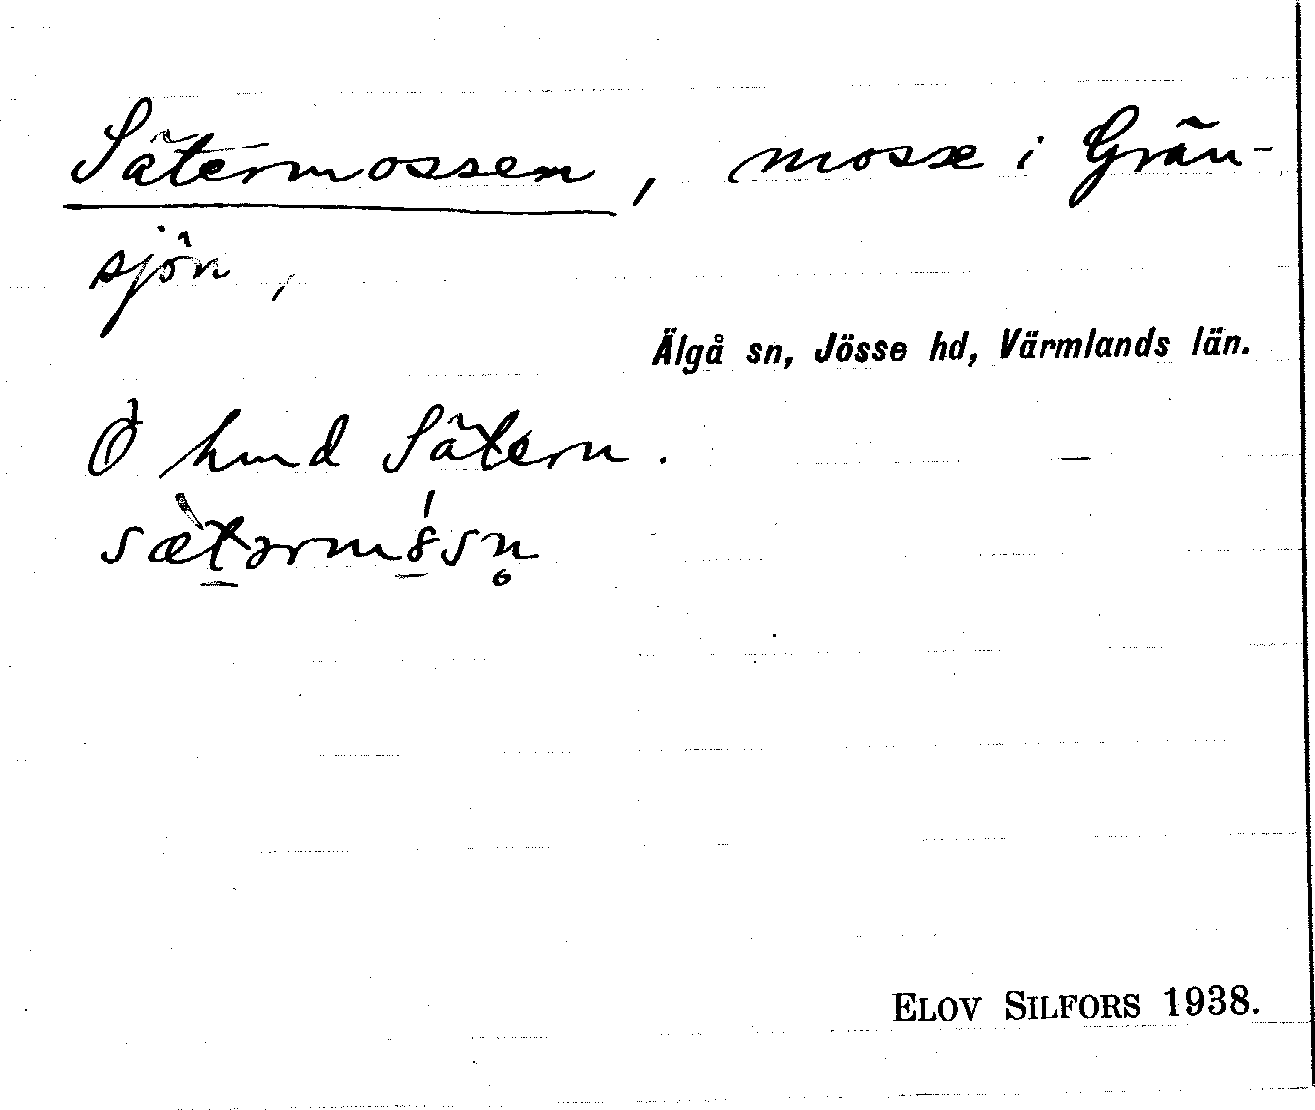 Sätermossen, mosse i Grän-
sjön,
Älgå sn, Jösse hd, Värmlands län.
Ö Sätern.
sætərm8sn̥
ELOV SILFORS 1938.